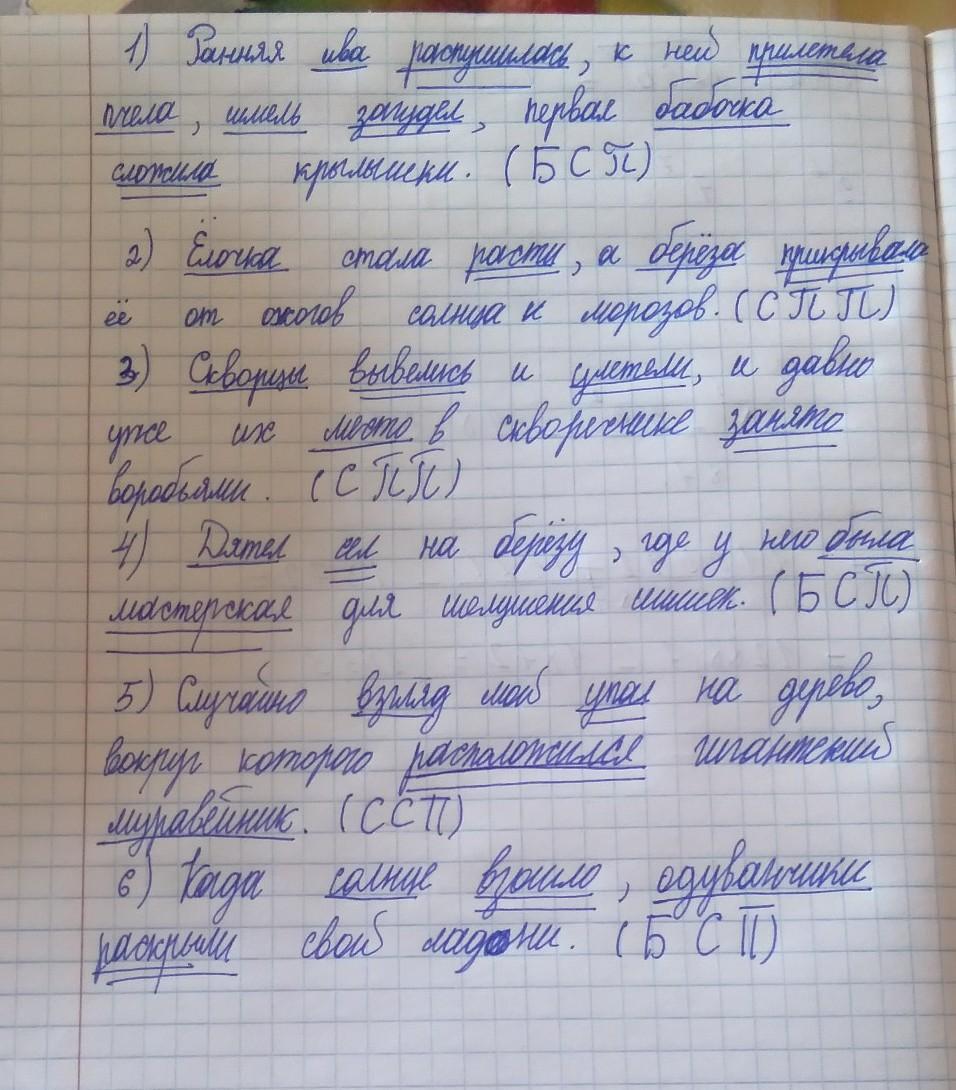 1) Ранняя ива распушилась, к ней прилетела
пчела, шмель загудел, первая бабочка
сложила крылышки. (БСП)
2) Ёлочка стала расти, а берёза прикрывала
её от ожогов солнца и морозов. (СПП)
3) Скворцы вывелись и улетели, и давно
уже их место в скворечнике занято
воробьями. (СПП)
4) Дятел сел на берёзу, где у него была
мастерская для шелушения шишек. (БСП)
5) Случайно взгляд мой упал на дерево,
вокруг которого расположился гигантский
муравейник. (ССП)
6) Когда солнце взошло, одуванчики
раскрыли свои ладони. (БСП)